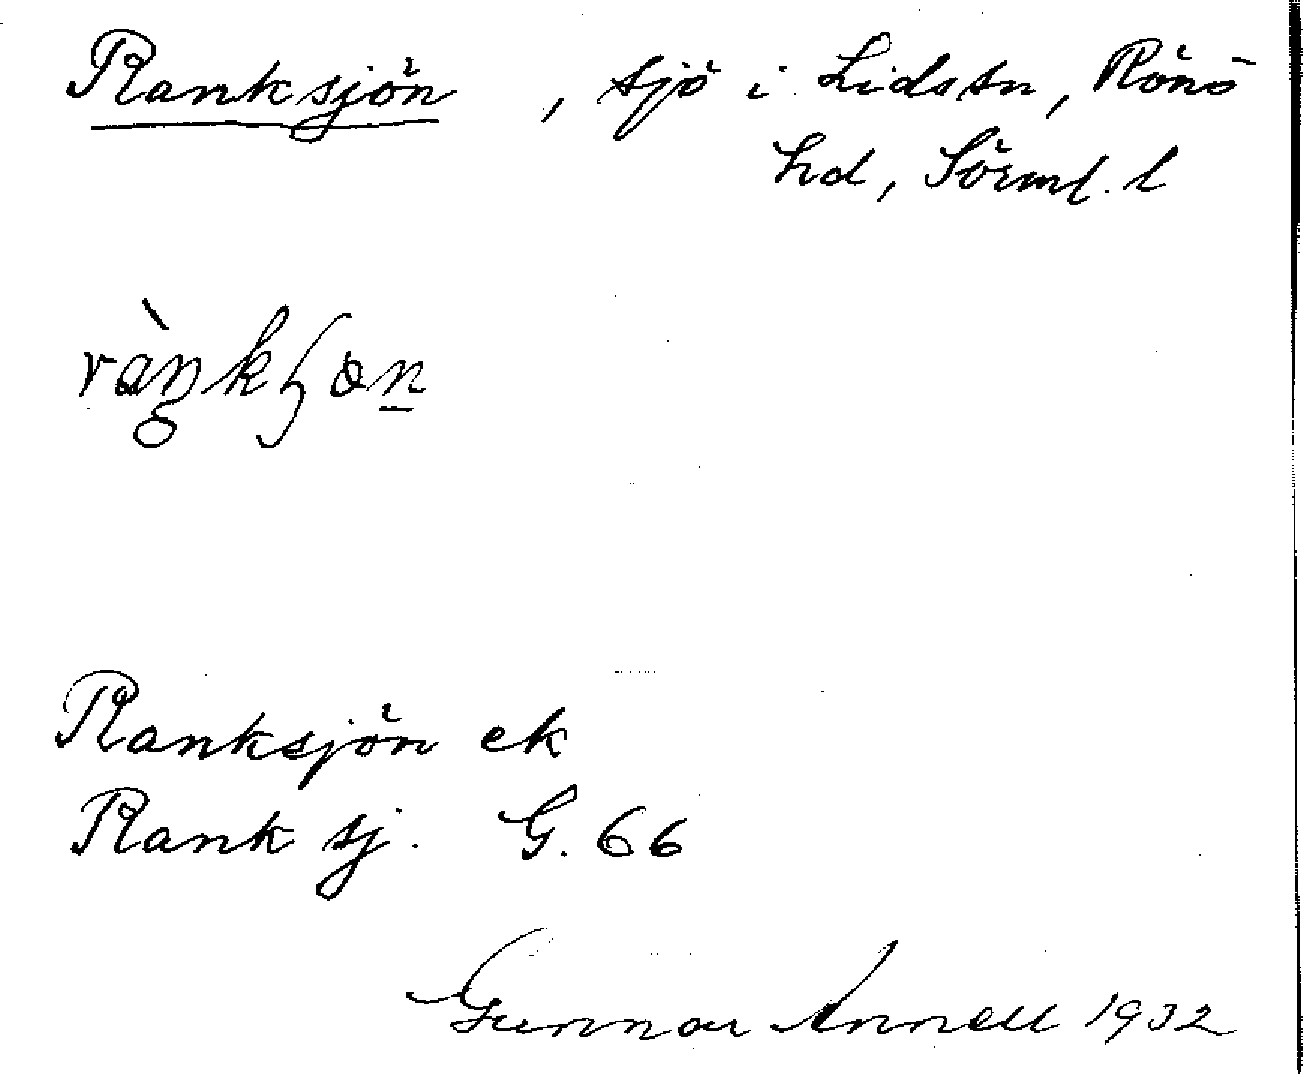 Ranksjön , sjö i Lids sn, Rönö
hd, Sörml. l
Ranksjön ek
Rank sj. G. 66
Gunnar Annell 1932